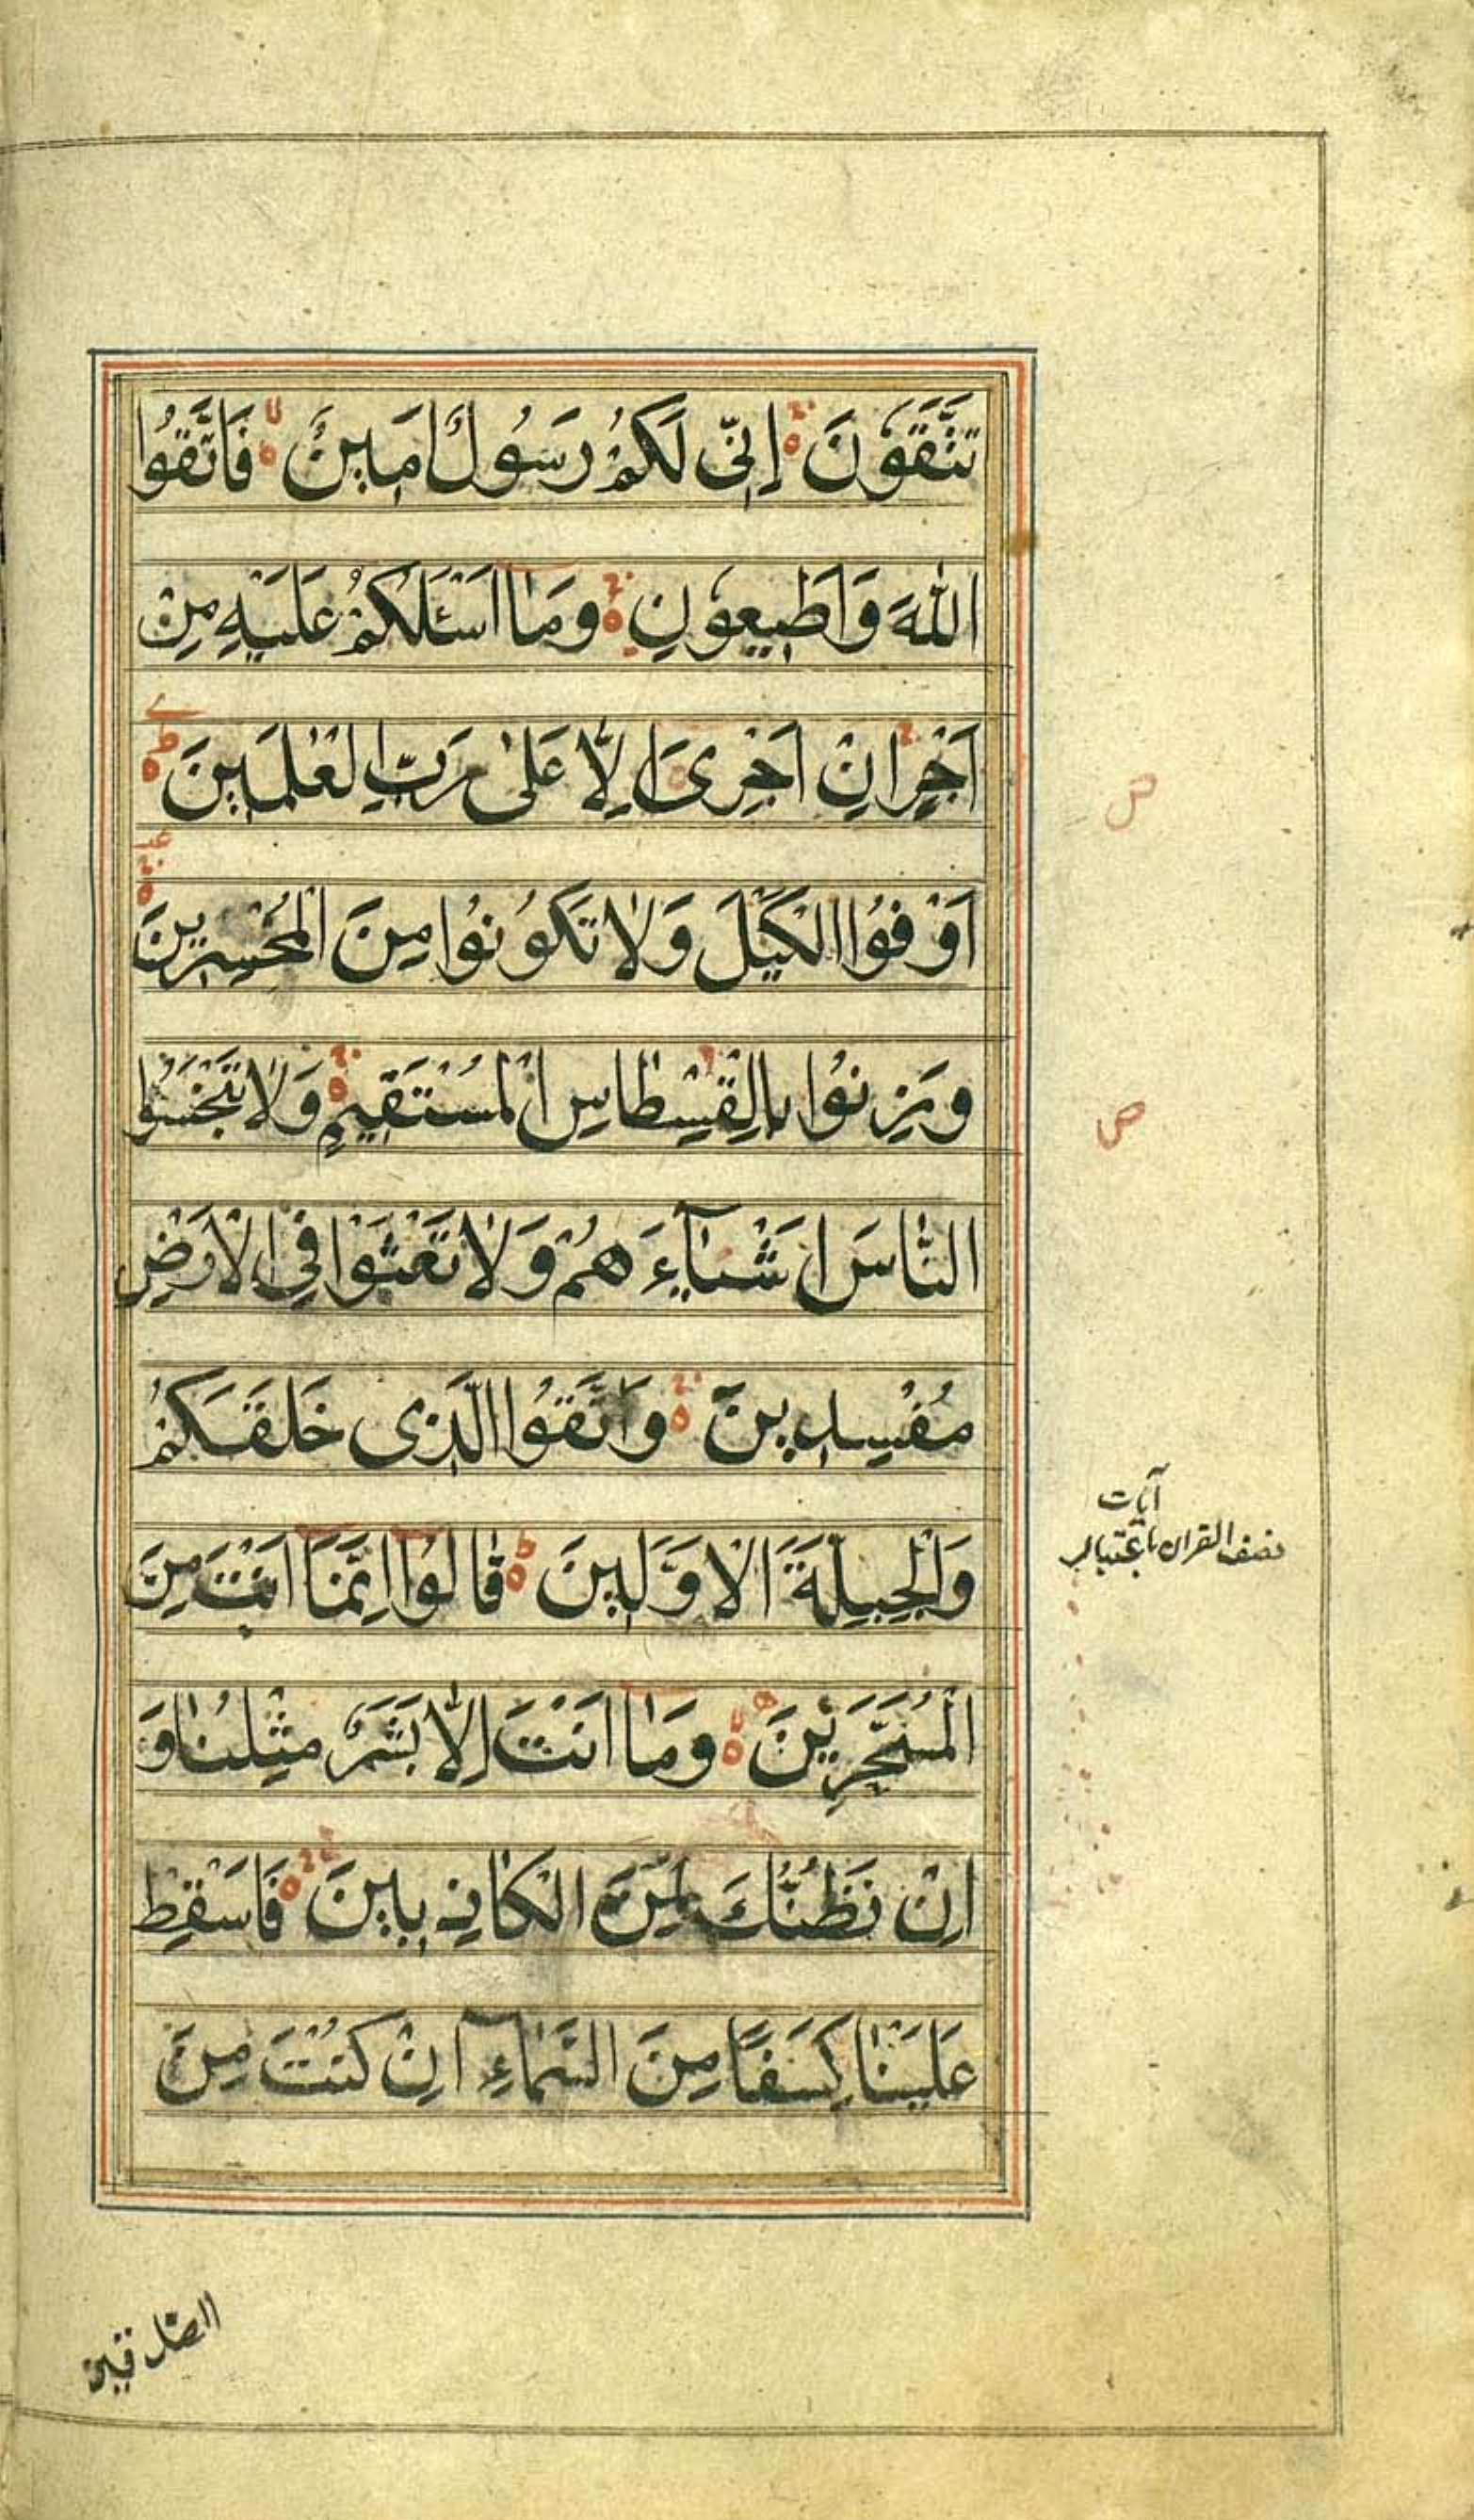 تَتَّقُوْنَ اِنِّیْ لَكُمْ رَسُوْلٌ اَمِیْنٌ فَاتَّقُوا
اللّٰهَ وَاَطِیْعُوْنِ وَمَاۤ اَسْئَلُكُمْ عَلَیْهِ مِنْ
اَجْرٍ اِنْ اَجْرِیَ اِلَّا عَلٰی رَبِّ الْعٰلَمِیْنَ
اَوْفُوا الْكَیْلَ وَلَا تَكُوْنُوْا مِنَ الْمُخْسِرِیْنَ
وَزِنُوْا بِالْقِسْطَاسِ الْمُسْتَقِیْمِ وَلَا تَبْخَسُوا
النَّاسَ اَشْیَآءَهُمْ وَلَا تَعْثَوْا فِی الْاَرْضِ
مُفْسِدِیْنَ وَاتَّقُوا الَّذِیْ خَلَقَكُمْ
وَالْجِبِلَّةَ الْاَوَّلِیْنَ قَالُوْۤا اِنَّمَاۤ اَنْتَ مِنَ
الْمُسَحَّرِیْنَ وَمَاۤ اَنْتَ اِلَّا بَشَرٌ مِّثْلُنَا وَ
اِنْ نَّظُنُّكَ لَمِنَ الْكَاذِبِیْنَ فَاَسْقِطْ
عَلَیْنَا كِسَفًا مِّنَ السَّمَآءِ اِنْ كُنْتَ مِنَ
الصّٰدقین
ص
ص
نصف القران باعتبار
آیات